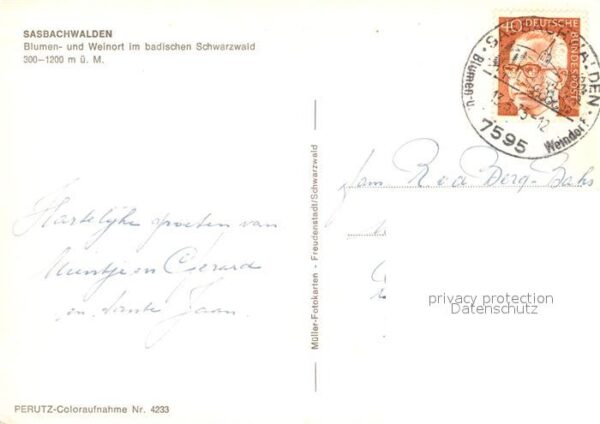 SASBACHWALDEN
Blumen- und Weinort im badischen Schwarzwald
300-1200 m ü. M.
Hartelijke groeten van
Meintje en Gerard
en tante Jaan.
PERUTZ-Coloraufnahme Nr. 4233
Müller-Fotokarten - Freudenstadt/Schwarzwald
40 DEUTSCHE
BUNDESPOST
7595
Blumen-u.
Weindorf
fam R v d Berg-Bahs
privacy protection
Datenschutz